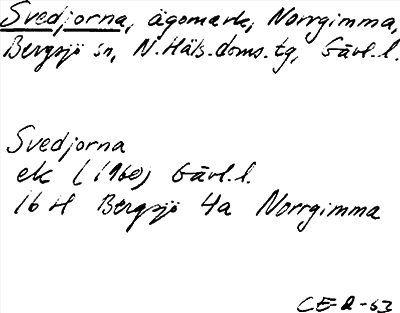 Svedjorna, ägomark, Norrgimma,
Bergsjö sn, N.Häls.doms.tg, Gävl.l.
Svedjorna
ek (1960) Gävl.l.
16 H Bergsjö 4a Norrgimma